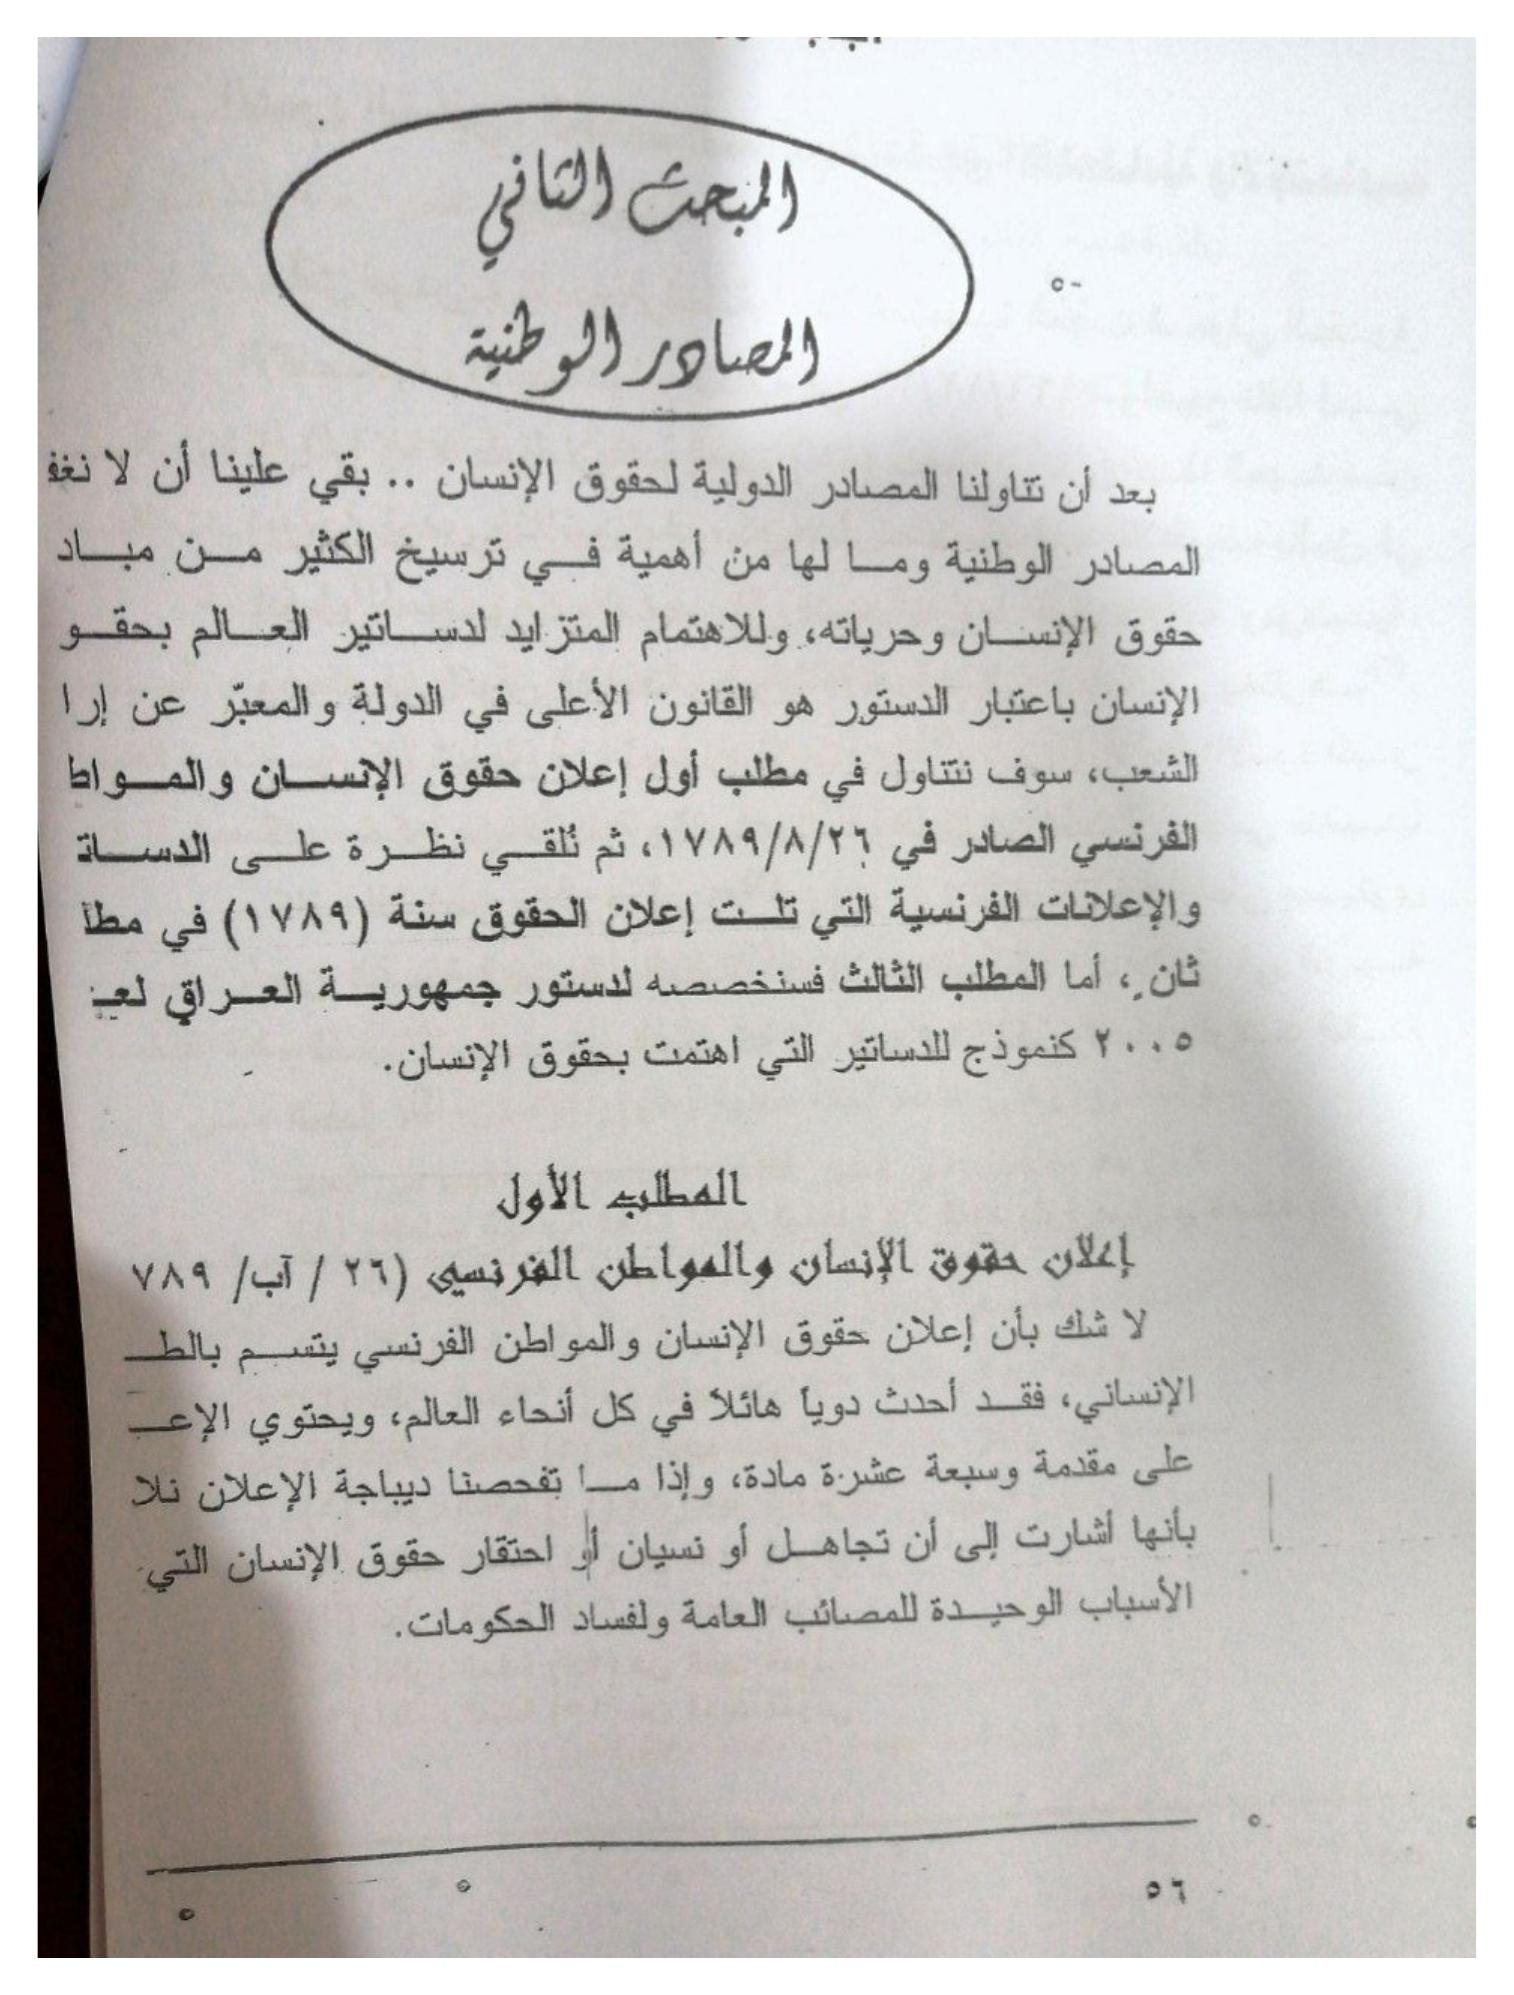 المبحث الثاني
المصادر الوطنية
بعد أن تناولنا المصادر الدولية لحقوق الإنسان .. بقي علينا أن لا نغف
المصادر الوطنية وما لها من أهمية في ترسيخ الكثير من مباد
حقوق الإنسان وحرياته، وللاهتمام المتزايد لدساتير العالم بحقو
الإنسان باعتبار الدستور هو القانون الأعلى في الدولة والمعبّر عن إرا
الشعب، سوف نتناول في مطلب أول إعلان حقوق الإنسان والمواط
الفرنسي الصادر في ١٧٨٩/٨/٢٦، ثم نُلقي نظرة على الدسات
والإعلانات الفرنسية التي تلت إعلان الحقوق سنة (١٧٨٩) في مطل
ثانٍ، أما المطلب الثالث فسنخصصه لدستور جمهورية العراق لعـ
٢٠٠٥ كنموذج للدساتير التي اهتمت بحقوق الإنسان.
المطلب الأول
إعلان حقوق الإنسان والمواطن الفرنسي (٢٦ / آب/ ٧٨٩
لا شك بأن إعلان حقوق الإنسان والمواطن الفرنسي يتسم بالطـ
الإنساني، فقد أحدث دوياً هائلاً في كل أنحاء العالم، ويحتوي الإعـ
على مقدمة وسبعة عشرة مادة، وإذا ما تفحصنا ديباجة الإعلان نلا
بأنها أشارت إلى أن تجاهل أو نسيان أو احتقار حقوق الإنسان التي
الأسباب الوحيدة للمصائب العامة ولفساد الحكومات.
٥٦